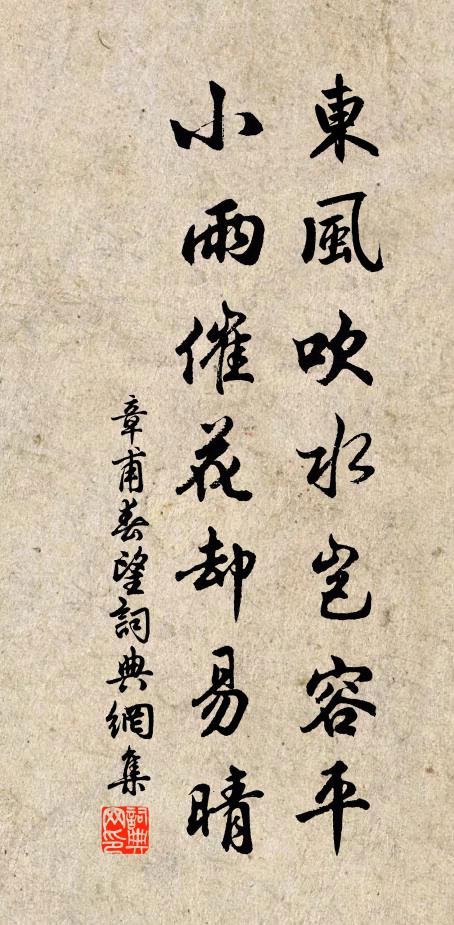 東風吹水岂容平
小雨催花却易晴
章甫春望詞典網集
詞典网印